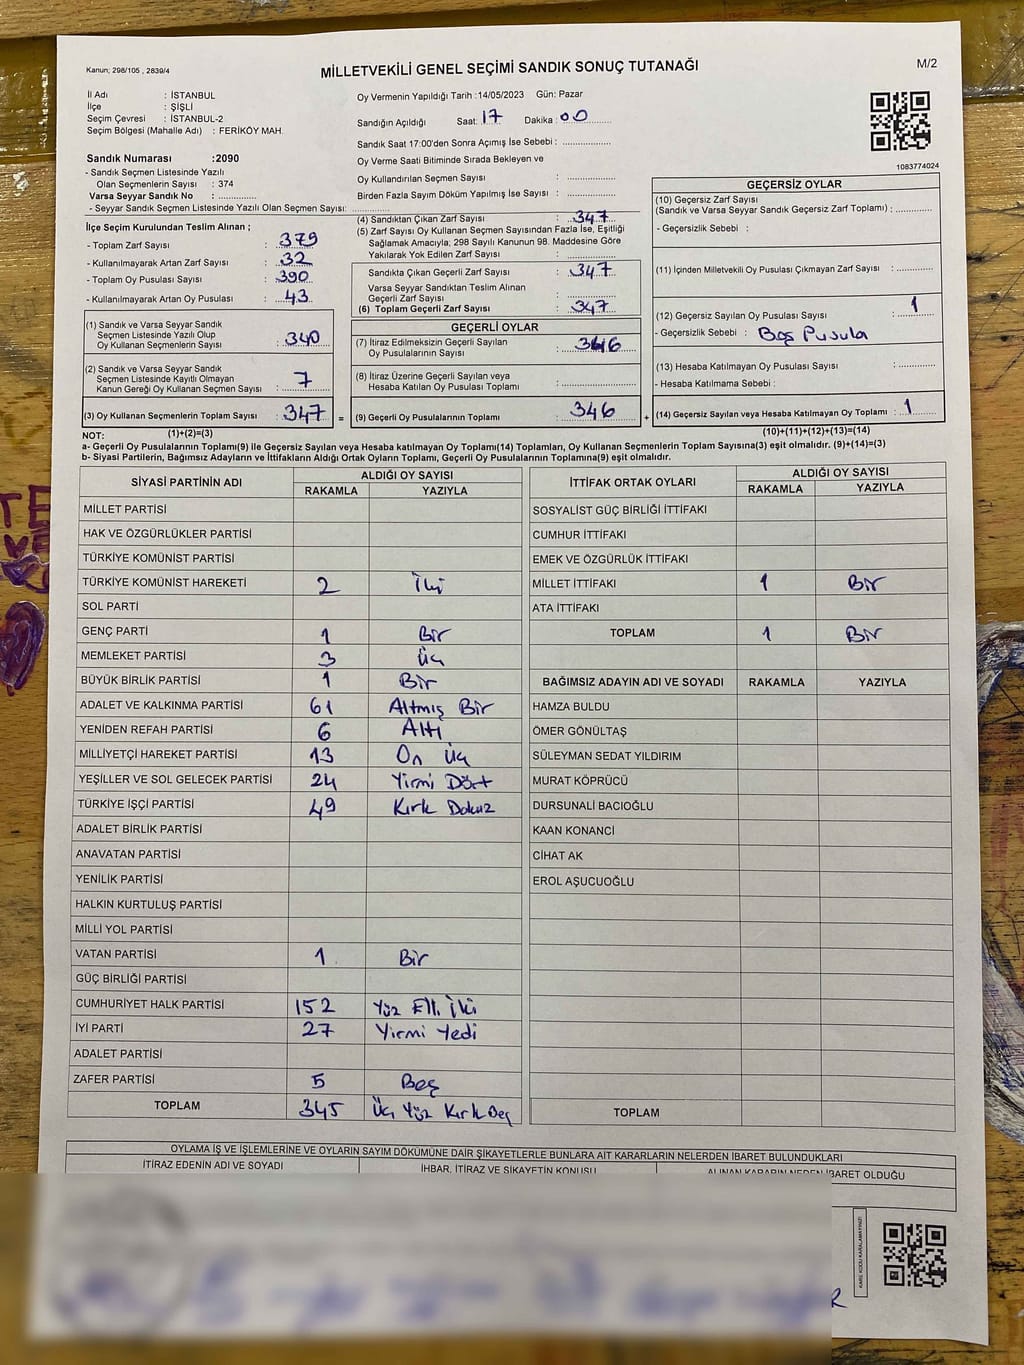 Kanun; 298/105 , 2839/4
MİLLETVEKİLİ GENEL SEÇİMİ SANDIK SONUÇ TUTANAĞI
M/2
İl Adı : İSTANBUL
İlçe : ŞİŞLİ
Seçim Çevresi : İSTANBUL-2
Seçim Bölgesi (Mahalle Adı) : FERİKÖY MAH.
Sandık Numarası :2090
- Sandık Seçmen Listesinde Yazılı
Olan Seçmenlerin Sayısı : 374
Varsa Seyyar Sandık No :
- Seyyar Sandık Seçmen Listesinde Yazılı Olan Seçmen Sayısı:
İlçe Seçim Kurulundan Teslim Alınan ;
- Toplam Zarf Sayısı : 379
- Kullanılmayarak Artan Zarf Sayısı : 32
- Toplam Oy Pusulası Sayısı : 390
- Kullanılmayarak Artan Oy Pusulası : 43
(1) Sandık ve Varsa Seyyar Sandık
Seçmen Listesinde Yazılı Olup
Oy Kullanan Seçmenlerin Sayısı : 340
(2) Sandık ve Varsa Seyyar Sandık
Seçmen Listesinde Kayıtlı Olmayan
Kanun Gereği Oy Kullanan Seçmen Sayısı : 7
(3) Oy Kullanan Seçmenlerin Toplam Sayısı : 347 =
(1)+(2)=(3)
Oy Vermenin Yapıldığı Tarih :14/05/2023 Gün: Pazar
Sandığın Açıldığı Saat: 17 Dakika : 00
Sandık Saat 17:00'den Sonra Açımış İse Sebebi :
Oy Verme Saati Bitiminde Sırada Bekleyen ve
Oy Kullandırılan Seçmen Sayısı :
Birden Fazla Sayım Döküm Yapılmış İse Sayısı :
(4) Sandıktan Çıkan Zarf Sayısı : 347
(5) Zarf Sayısı Oy Kullanan Seçmen Sayısından Fazla İse, Eşitliği
Sağlamak Amacıyla; 298 Sayılı Kanunun 98. Maddesine Göre
Yakılarak Yok Edilen Zarf Sayısı :
Sandıkta Çıkan Geçerli Zarf Sayısı : 347
Varsa Seyyar Sandıktan Teslim Alınan
Geçerli Zarf Sayısı :
(6) Toplam Geçerli Zarf Sayısı : 347
GEÇERLİ OYLAR
(7) İtiraz Edilmeksizin Geçerli Sayılan
Oy Pusulalarının Sayısı : 346
(8) İtiraz Üzerine Geçerli Sayılan veya
Hesaba Katılan Oy Pusulası Toplamı :
(9) Geçerli Oy Pusulalarının Toplamı : 346 +
1083774024
GEÇERSİZ OYLAR
(10) Geçersiz Zarf Sayısı
(Sandık ve Varsa Seyyar Sandık Geçersiz Zarf Toplamı) :
- Geçersizlik Sebebi :
(11) İçinden Milletvekili Oy Pusulası Çıkmayan Zarf Sayısı :
(12) Geçersiz Sayılan Oy Pusulası Sayısı : 1
- Geçersizlik Sebebi : Boş Pusula
(13) Hesaba Katılmayan Oy Pusulası Sayısı :
- Hesaba Katılmama Sebebi :
(14) Geçersiz Sayılan veya Hesaba Katılmayan Oy Toplamı : 1
(10)+(11)+(12)+(13)=(14)
NOT:
a- Geçerli Oy Pusulalarının Toplamı(9) ile Geçersiz Sayılan veya Hesaba katılmayan Oy Toplamı(14) Toplamları, Oy Kullanan Seçmenlerin Toplam Sayısına(3) eşit olmalıdır. (9)+(14)=(3)
b- Siyasi Partilerin, Bağımsız Adayların ve İttifakların Aldığı Ortak Oyların Toplamı, Geçerli Oy Pusulalarının Toplamına(9) eşit olmalıdır.
SİYASİ PARTİNİN ADI ALDIĞI OY SAYISI
RAKAMLA YAZIYLA
MİLLET PARTİSİ
HAK VE ÖZGÜRLÜKLER PARTİSİ
TÜRKİYE KOMÜNİST PARTİSİ
TÜRKİYE KOMÜNİST HAREKETİ 2 İki
SOL PARTİ
GENÇ PARTİ 1 Bir
MEMLEKET PARTİSİ 3 Üç
BÜYÜK BİRLİK PARTİSİ 1 Bir
ADALET VE KALKINMA PARTİSİ 61 Altmış Bir
YENİDEN REFAH PARTİSİ 6 Altı
MİLLİYETÇİ HAREKET PARTİSİ 13 On Üç
YEŞİLLER VE SOL GELECEK PARTİSİ 24 Yirmi Dört
TÜRKİYE İŞÇİ PARTİSİ 49 Kırk Dokuz
ADALET BİRLİK PARTİSİ
ANAVATAN PARTİSİ
YENİLİK PARTİSİ
HALKIN KURTULUŞ PARTİSİ
MİLLİ YOL PARTİSİ
VATAN PARTİSİ 1 Bir
GÜÇ BİRLİĞİ PARTİSİ
CUMHURİYET HALK PARTİSİ 152 Yüz Elli İki
İYİ PARTİ 27 Yirmi Yedi
ADALET PARTİSİ
ZAFER PARTİSİ 5 Beş
TOPLAM 345 Üç Yüz Kırk Beş
İTTİFAK ORTAK OYLARI ALDIĞI OY SAYISI
RAKAMLA YAZIYLA
SOSYALİST GÜÇ BİRLİĞİ İTTİFAKI
CUMHUR İTTİFAKI
EMEK VE ÖZGÜRLÜK İTTİFAKI
MİLLET İTTİFAKI 1 Bir
ATA İTTİFAKI
TOPLAM 1 Bir
BAĞIMSIZ ADAYIN ADI VE SOYADI RAKAMLA YAZIYLA
HAMZA BULDU
ÖMER GÖNÜLTAŞ
SÜLEYMAN SEDAT YILDIRIM
MURAT KÖPRÜCÜ
DURSUNALİ BACIOĞLU
KAAN KONANCİ
CİHAT AK
EROL AŞUCUOĞLU
TOPLAM
OYLAMA İŞ VE İŞLEMLERİNE VE OYLARIN SAYIM DÖKÜMÜNE DAİR ŞİKAYETLERLE BUNLARA AİT KARARLARIN NELERDEN İBARET BULUNDUKLARI
İTİRAZ EDENİN ADI VE SOYADI İHBAR, İTİRAZ VE ŞİKAYETİN KONUSU ALINAN KARARIN NEDEN İBARET OLDUĞU
KARE KODU KARALAMAYINIZ!